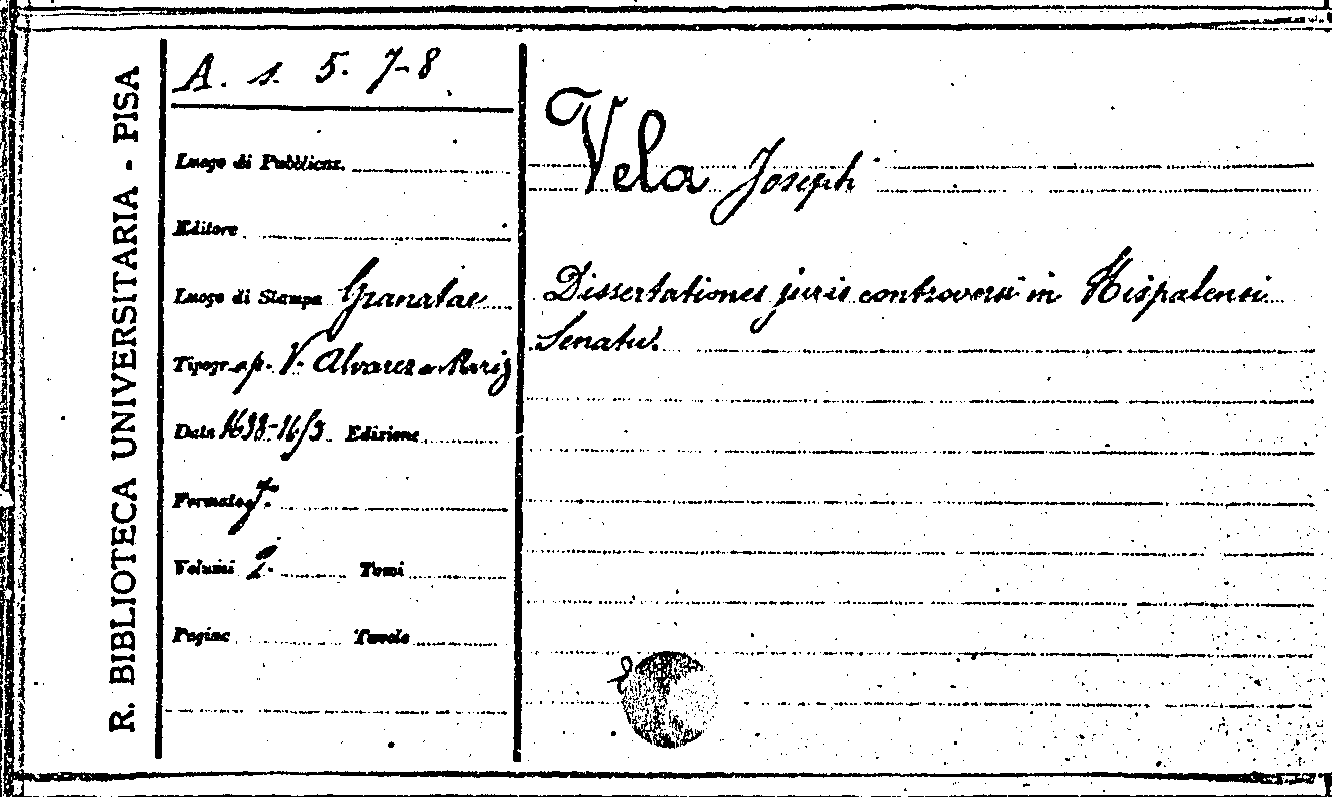 R. BIBLIOTECA UNIVERSITARIA - PISA
A. s. 5. 7-8
Luogo di Pubblicaz.
Editore
Luogo di Stampa Granatae
Tipogr. ap. V. Alvarez a Mariz
Data 1638-1653 Edizione
Formato f.º
Volumi 2. Tomi
Pagine Tavole
Vela Joseph
Dissertationes juris controversi in Hispalensi
Senatu.